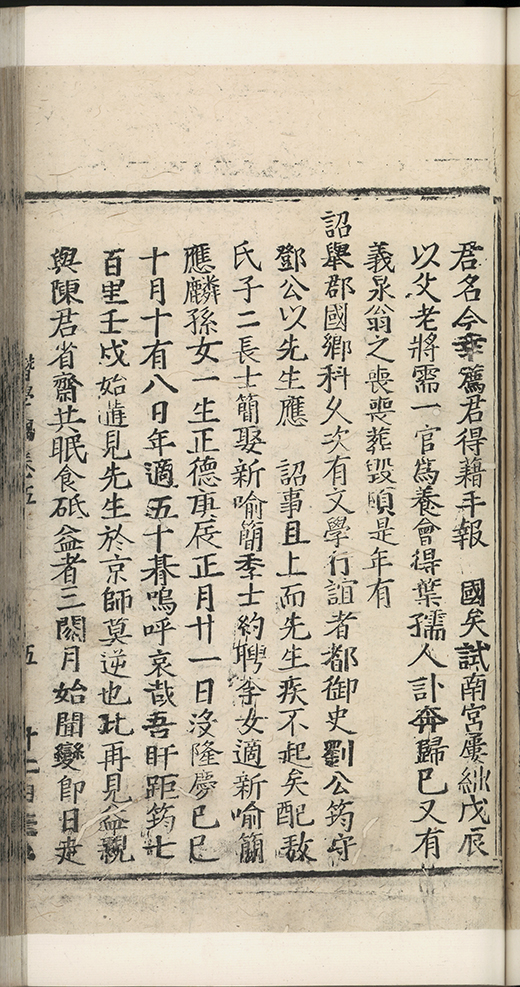 君名今幸薦君得藉手報　國矣試南宮屢絀戊辰
以父老將需一官爲養會得葉孺人訃奔歸已又有
義泉翁之喪喪葬毀頓是年有
詔舉郡國鄉科久次有文學行誼者都御史劉公筠守
鄧公以先生應　詔事且上而先生疾不起矣配敖
氏子二長士簡娶新喻簡季士約聘李女適新喻簡
應麟孫女一生正德庚辰正月廿一日沒隆慶己巳
十月十有八日年適五十朞嗚呼哀哉吾盱距筠七
百里壬戌始遘見先生於京師莫逆也此再見益親
與陳君省齋共眠食砥益者三閱月始聞變即日走
學 卷五　五